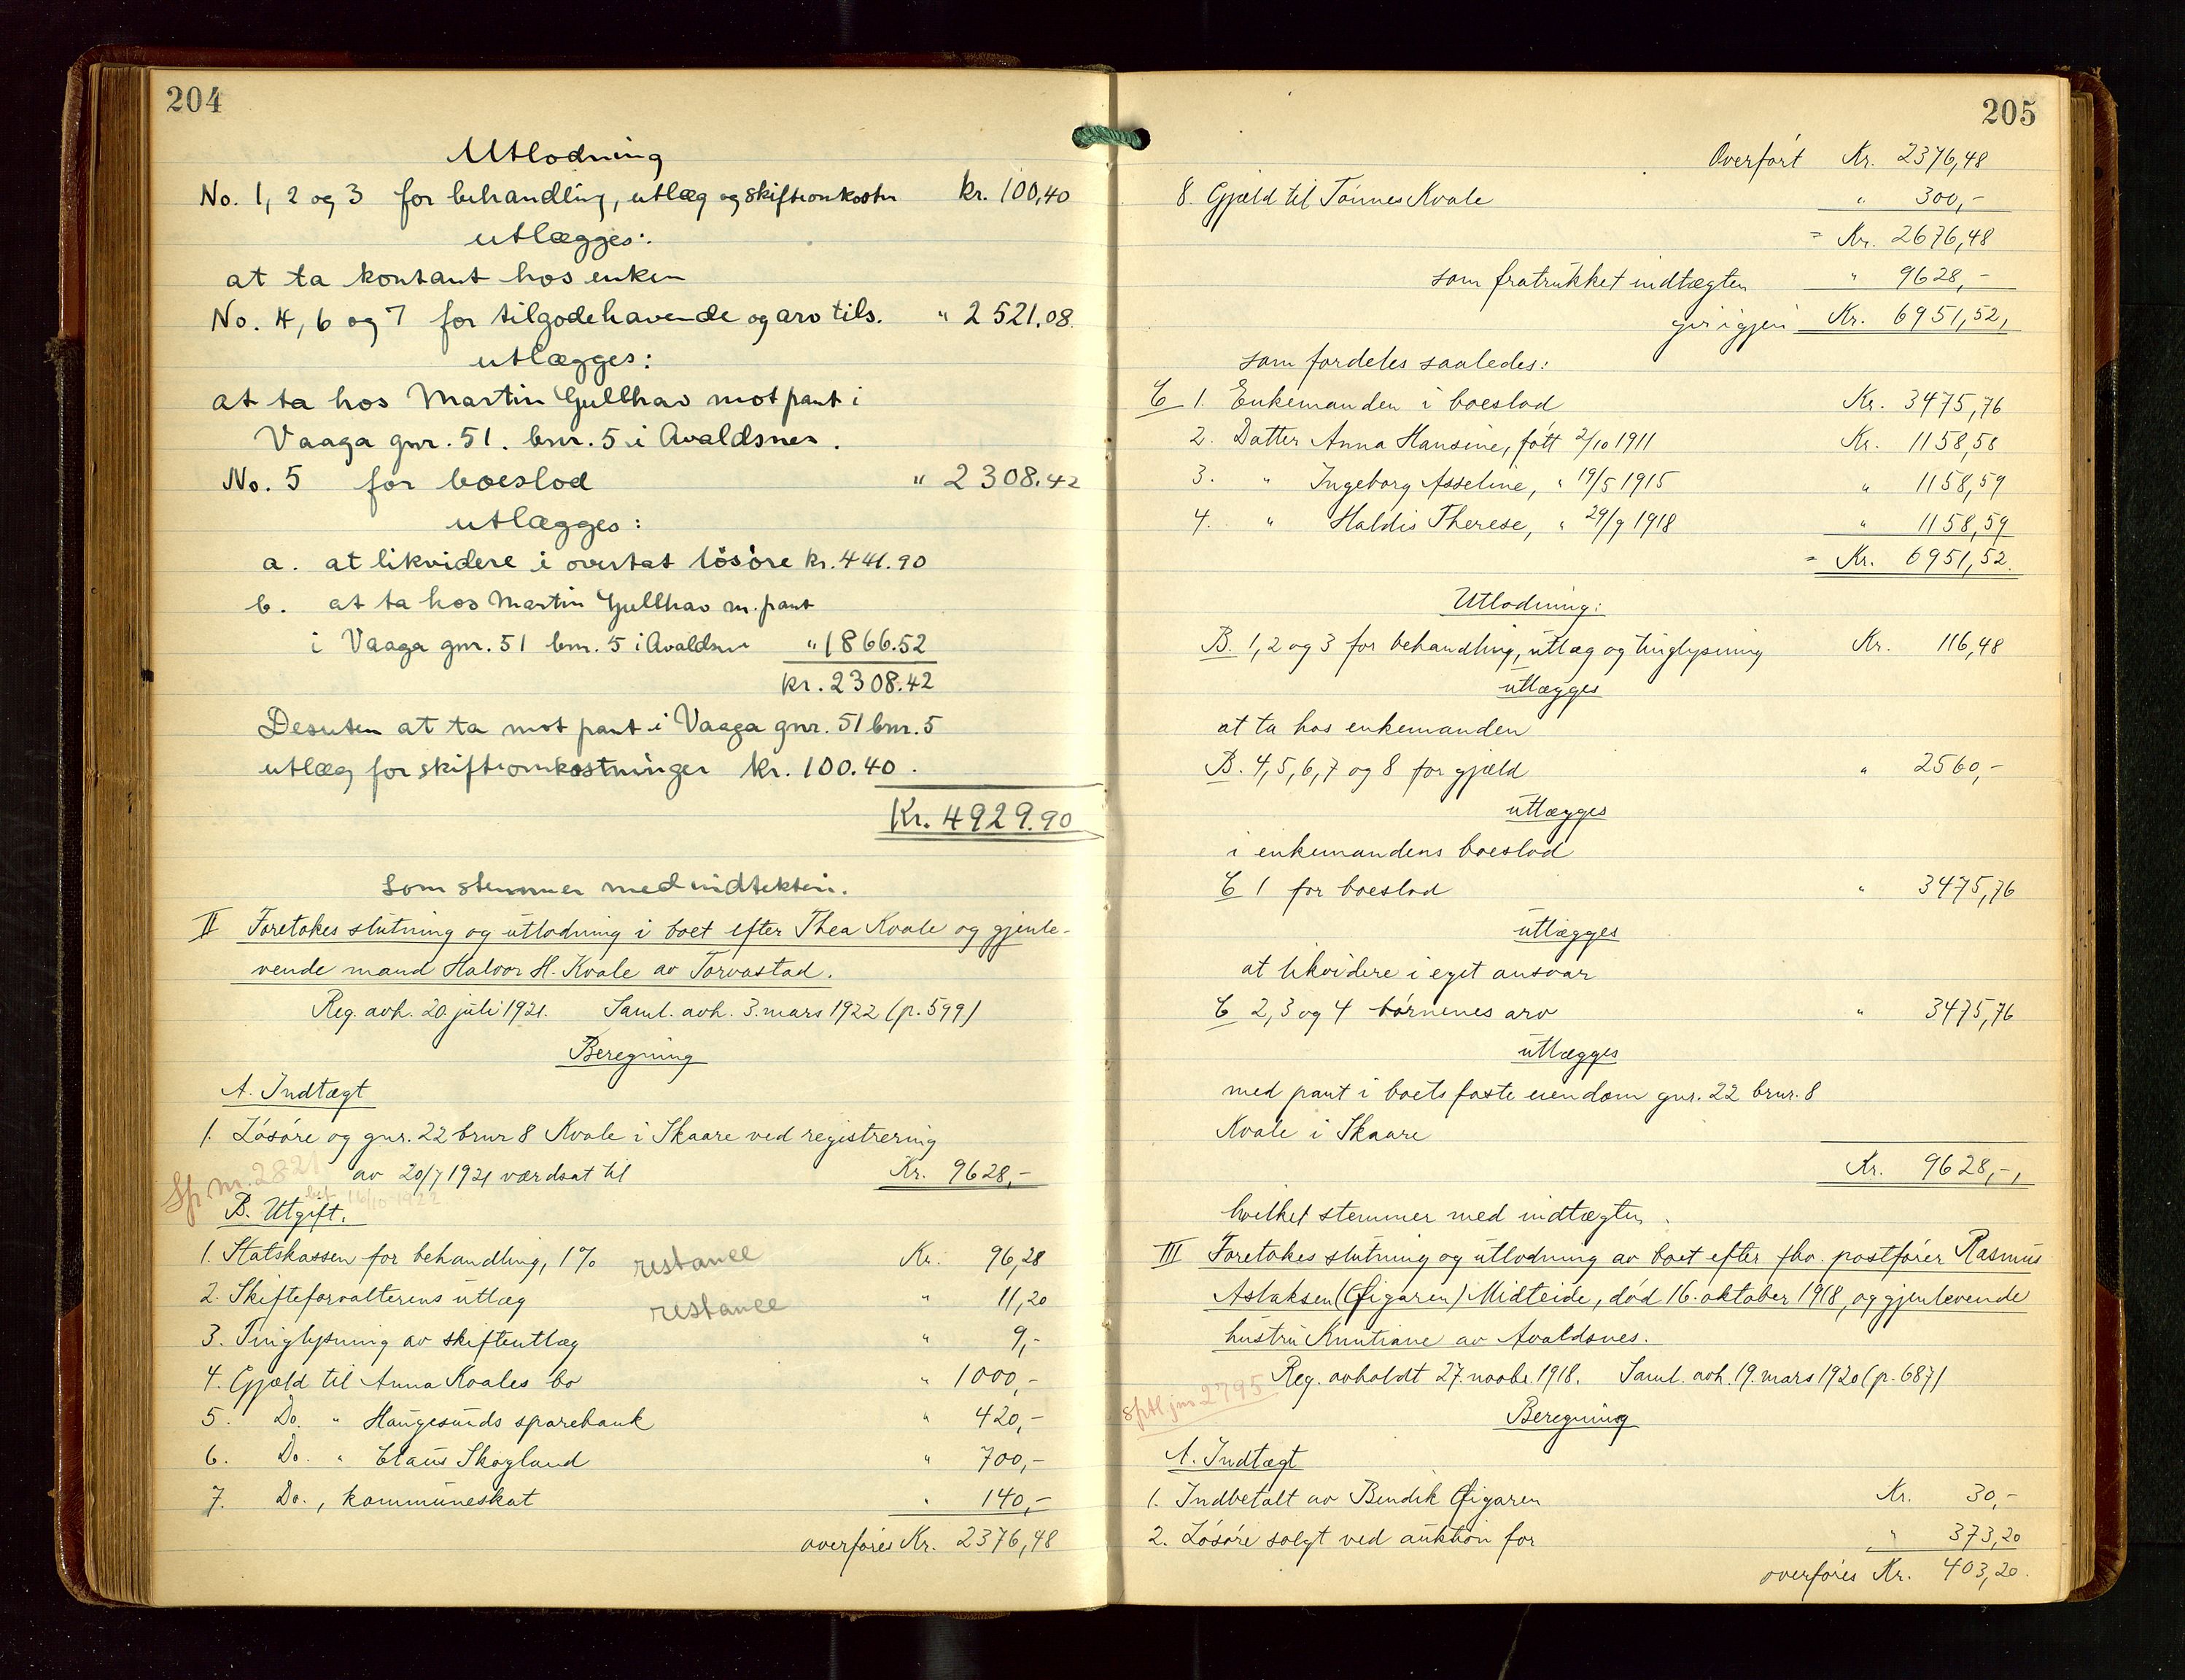 204
Utlodning
No. 1, 2 og 3 for behandling, utlæg og skifteomkostn kr. 100,40
utlægges:
at ta kontant hos enken
No. 4, 6 og 7 for tilgodehavende og arv tils. " 2521.08
utlægges:
at ta hos Martin Gullhav mot pant i
Vaaga gnr. 51. bnr. 5 i Avaldsnes.
No. 5 for boeslod " 2308.42
utlægges:
a. at likvidere i overtat løsøre kr. 441.90
b. at ta hos Martin Gullhav m. pant
i Vaaga gnr. 51 bnr. 5 i Avaldsnes " 1866.52
kr. 2308.42
Desuten at ta mot pant i Vaaga gnr. 51 bnr. 5
utlæg for skifteomkostninger kr. 100.40.
Kr. 4929.90
som stemmer med indtekten.
II Foretokes slutning og utlodning i boet efter Thea Kvale og gjenle-
vende mand Halvor H. Kvale av Torvastad.
Reg. avh. 20. juli 1921. Saml. avh. 3. mars 1922 (p. 599)
Beregning
A. Indtægt
1. Løsøre og gnr. 22 brnr 8 Kvale i Skaare ved registrering
av 20/7 1921 værdsat til Kr. 9628,-
Sp nr. 2821
bet. 16/10 1922
B. Utgift.
1. Statskassen for behandling, 1% restance Kr. 96,28
2. Skifteforvalterens utlæg restance " 11,20
3. Tinglysning av skifteutlæg " 9,-
4. Gjæld til Anna Kvales bo " 1000,-
5. Do. " Haugesunds sparebank " 420,-
6. Do. " Claus Skogland " 700,-
7. Do., kommuneskat " 140,-
overføres Kr. 2376,48
205
Overført Kr. 2376,48
8. Gjæld til Tønnes Kvale " 300,-
= Kr. 2676,48
som fratrukket indtægten " 9628,-
gir igjen Kr. 6951,52,
som fordeles saaledes:
C 1. Enkemanden i boeslod Kr. 3475,76
2. Datter Anna Hansine, født 2/10 1911 Kr. 1158,58
3. " Ingeborg Asseline, " 19/5 1915 " 1158,59
4. " Haldis Therese, " 29/9 1918 " 1158,59
= Kr. 6951,52.
Utlodning:
B. 1, 2 og 3 for behandling, utlæg og tinglysning Kr. 116,48
utlægges
at ta hos enkemanden
B. 4, 5, 6, 7 og 8 for gjæld " 2560,-
utlægges
i enkemandens boeslod
C 1 for boeslod " 3475,76
utlægges
at likvidere i eget ansvar
C 2, 3 og 4 børnenes arv " 3475,76
utlægges
med pant i boets faste eiendom gnr. 22 brnr. 8
Kvale i Skaare
Kr. 9628,-,
hvilket stemmer med indtægten.
III Foretokes slutning og utlodning av boet efter fhv. postfører Rasmus
Aslaksen (Øigaren) Midteide, død 16. oktober 1918, og gjenlevende
hustru Knutiane av Avaldsnes.
Reg. avholdt 27. novbr. 1918. Saml. avh. 19. mars 1920 (p. 687)
2795
Beregning
A. Indtægt
1. Indbetalt av Bendik Øigaren Kr. 30,-
2. Løsøre solgt ved auktion for " 373,20
overføres Kr. 403,20.